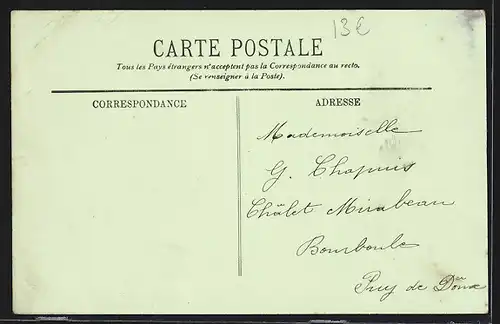 13€
CARTE POSTALE
Tous les Pays étrangers n'acceptent pas la Correspondance au recto.
(Se renseigner à la Poste).
CORRESPONDANCE
ADRESSE
Mademoiselle
G. Chapuis
Châlet Mirabeau
Bourboule
Puy de Dôme